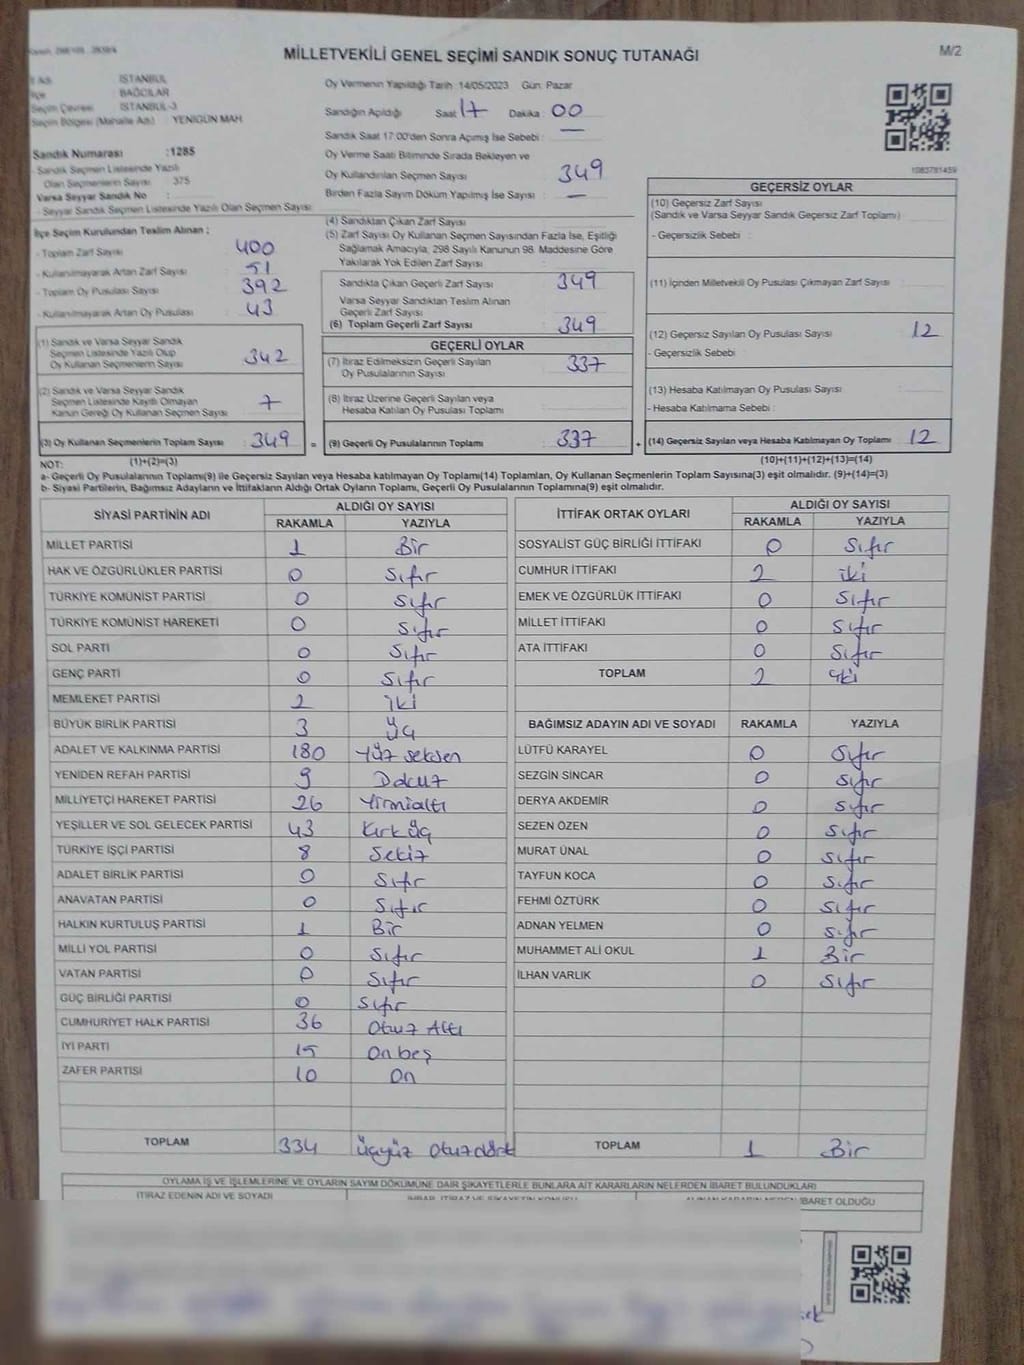 MİLLETVEKİLİ GENEL SEÇİMİ SANDIK SONUÇ TUTANAĞI
M/2
İl Adı : İSTANBUL
İlçe : BAĞCILAR
Seçim Çevresi : İSTANBUL-3
Seçim Bölgesi (Mahalle Adı) : YENİGÜN MAH
Sandık Numarası :1285
- Sandık Seçmen Listesinde Yazılı
Olan Seçmenlerin Sayısı : 375
Varsa Seyyar Sandık No :
- Seyyar Sandık Seçmen Listesinde Yazılı Olan Seçmen Sayısı :
İlçe Seçim Kurulundan Teslim Alınan :
- Toplam Zarf Sayısı 400
- Kullanılmayarak Artan Zarf Sayısı 51
- Toplam Oy Pusulası Sayısı 392
- Kullanılmayarak Artan Oy Pusulası 43
(1) Sandık ve Varsa Seyyar Sandık
Seçmen Listesinde Yazılı Olup
Oy Kullanan Seçmenlerin Sayısı 342
(2) Sandık ve Varsa Seyyar Sandık
Seçmen Listesinde Kayıtlı Olmayan
Kanun Gereği Oy Kullanan Seçmen Sayısı 7
(3) Oy Kullanan Seçmenlerin Toplam Sayısı 349 =
Oy Vermenin Yapıldığı Tarih :14/05/2023 Gün: Pazar
Sandığın Açıldığı Saat 17 Dakika : 00
Sandık Saat 17:00'den Sonra Açmış İse Sebebi : —
Oy Verme Saati Bitiminde Sırada Bekleyen ve
Oy Kullandırılan Seçmen Sayısı : 349
Birden Fazla Sayım Döküm Yapılmış İse Sayısı : —
(4) Sandıktan Çıkan Zarf Sayısı :
(5) Zarf Sayısı Oy Kullanan Seçmen Sayısından Fazla İse, Eşitliği
Sağlamak Amacıyla, 298 Sayılı Kanunun 98. Maddesine Göre
Yakılarak Yok Edilen Zarf Sayısı :
Sandıkta Çıkan Geçerli Zarf Sayısı : 349
Varsa Seyyar Sandıktan Teslim Alınan
Geçerli Zarf Sayısı :
(6) Toplam Geçerli Zarf Sayısı : 349
GEÇERLİ OYLAR
(7) İtiraz Edilmeksizin Geçerli Sayılan
Oy Pusulalarının Sayısı : 337
(8) İtiraz Üzerine Geçerli Sayılan veya
Hesaba Katılan Oy Pusulası Toplamı
(9) Geçerli Oy Pusulalarının Toplamı : 337 +
1083781459
GEÇERSİZ OYLAR
(10) Geçersiz Zarf Sayısı
(Sandık ve Varsa Seyyar Sandık Geçersiz Zarf Toplamı) :
- Geçersizlik Sebebi :
(11) İçinden Milletvekili Oy Pusulası Çıkmayan Zarf Sayısı :
(12) Geçersiz Sayılan Oy Pusulası Sayısı : 12
- Geçersizlik Sebebi
(13) Hesaba Katılmayan Oy Pusulası Sayısı :
- Hesaba Katılmama Sebebi :
(14) Geçersiz Sayılan veya Hesaba Katılmayan Oy Toplamı 12
NOT: (1)+(2)=(3) (10)+(11)+(12)+(13)=(14)
a- Geçerli Oy Pusulalarının Toplamı(9) ile Geçersiz Sayılan veya Hesaba katılmayan Oy Toplamı(14) Toplamları, Oy Kullanan Seçmenlerin Toplam Sayısına(3) eşit olmalıdır. (9)+(14)=(3)
b- Siyasi Partilerin, Bağımsız Adayların ve İttifakların Aldığı Ortak Oyların Toplamı, Geçerli Oy Pusulalarının Toplamına(9) eşit olmalıdır.
SİYASİ PARTİNİN ADI ALDIĞI OY SAYISI
RAKAMLA YAZIYLA
MİLLET PARTİSİ 1 Bir
HAK VE ÖZGÜRLÜKLER PARTİSİ 0 Sıfır
TÜRKİYE KOMÜNİST PARTİSİ 0 Sıfır
TÜRKİYE KOMÜNİST HAREKETİ 0 Sıfır
SOL PARTİ 0 Sıfır
GENÇ PARTİ 0 Sıfır
MEMLEKET PARTİSİ 2 iki
BÜYÜK BİRLİK PARTİSİ 3 Üç
ADALET VE KALKINMA PARTİSİ 180 Yüz seksen
YENİDEN REFAH PARTİSİ 9 Dokuz
MİLLİYETÇİ HAREKET PARTİSİ 26 Yirmialtı
YEŞİLLER VE SOL GELECEK PARTİSİ 43 Kırk üç
TÜRKİYE İŞÇİ PARTİSİ 8 Sekiz
ADALET BİRLİK PARTİSİ 0 Sıfır
ANAVATAN PARTİSİ 0 Sıfır
HALKIN KURTULUŞ PARTİSİ 1 Bir
MİLLİ YOL PARTİSİ 0 Sıfır
VATAN PARTİSİ 0 Sıfır
GÜÇ BİRLİĞİ PARTİSİ 0 Sıfır
CUMHURİYET HALK PARTİSİ 36 Otuz Altı
İYİ PARTİ 15 On beş
ZAFER PARTİSİ 10 On
TOPLAM 334 Üçyüz Otuzdört
İTTİFAK ORTAK OYLARI ALDIĞI OY SAYISI
RAKAMLA YAZIYLA
SOSYALİST GÜÇ BİRLİĞİ İTTİFAKI 0 Sıfır
CUMHUR İTTİFAKI 2 iki
EMEK VE ÖZGÜRLÜK İTTİFAKI 0 Sıfır
MİLLET İTTİFAKI 0 Sıfır
ATA İTTİFAKI 0 Sıfır
TOPLAM 2 iki
BAĞIMSIZ ADAYIN ADI VE SOYADI RAKAMLA YAZIYLA
LÜTFÜ KARAYEL 0 Sıfır
SEZGİN SİNCAR 0 Sıfır
DERYA AKDEMİR 0 Sıfır
SEZEN ÖZEN 0 Sıfır
MURAT ÜNAL 0 Sıfır
TAYFUN KOCA 0 Sıfır
FEHMİ ÖZTÜRK 0 Sıfır
ADNAN YELMEN 0 Sıfır
MUHAMMET ALİ OKUL 1 Bir
İLHAN VARLIK 0 Sıfır
TOPLAM 1 Bir
OYLAMA İŞ VE İŞLEMLERİNE VE OYLARIN SAYIM DÖKÜMÜNE DAİR ŞİKAYETLERLE BUNLARA AİT KARARLARIN NELERDEN İBARET BULUNDUKLARI
İTİRAZ EDENİN ADI VE SOYADI İHBAR, İTİRAZ VE ŞİKAYETİN KONUSU ALINAN KARARIN NEDEN İBARET OLDUĞU